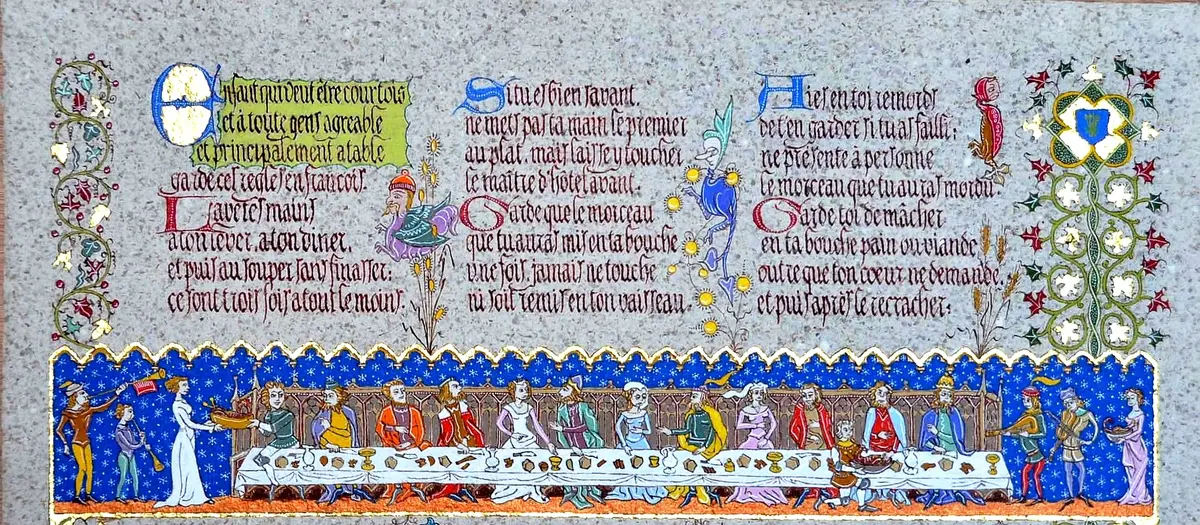 Enfant qui veut être courtois
et à toute gens agreable
et principalement a table
garde ces regles en francois.
Lave tes mains
a ton lever, a ton diner,
et puis au souper sans finasser:
ce sont trois fois a tout le moins.
Si tu es bien savant,
ne mets pas ta main le premier
au plat, mais laisse y toucher
le maître d'hôtel avant.
Garde que le morceau
que tu auras mis en ta bouche
une fois, jamais ne touche
ni soit remis en ton vaisseau.
Aies en toi remords
de t'en garder si tu as failli:
ne présente à personne
le morceau que tu auras mordu
Garde toi de mâcher
en ta bouche pain ou viande
outre que ton coeur ne demande,
et puis après le recracher: